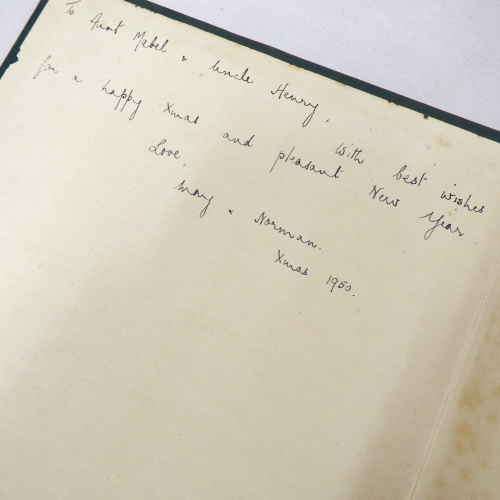 To Aunt Mabel & Uncle Henry,
With best wishes
for a happy Xmas and pleasant New Year.
Love,
May & Norman.
Xmas 1950.